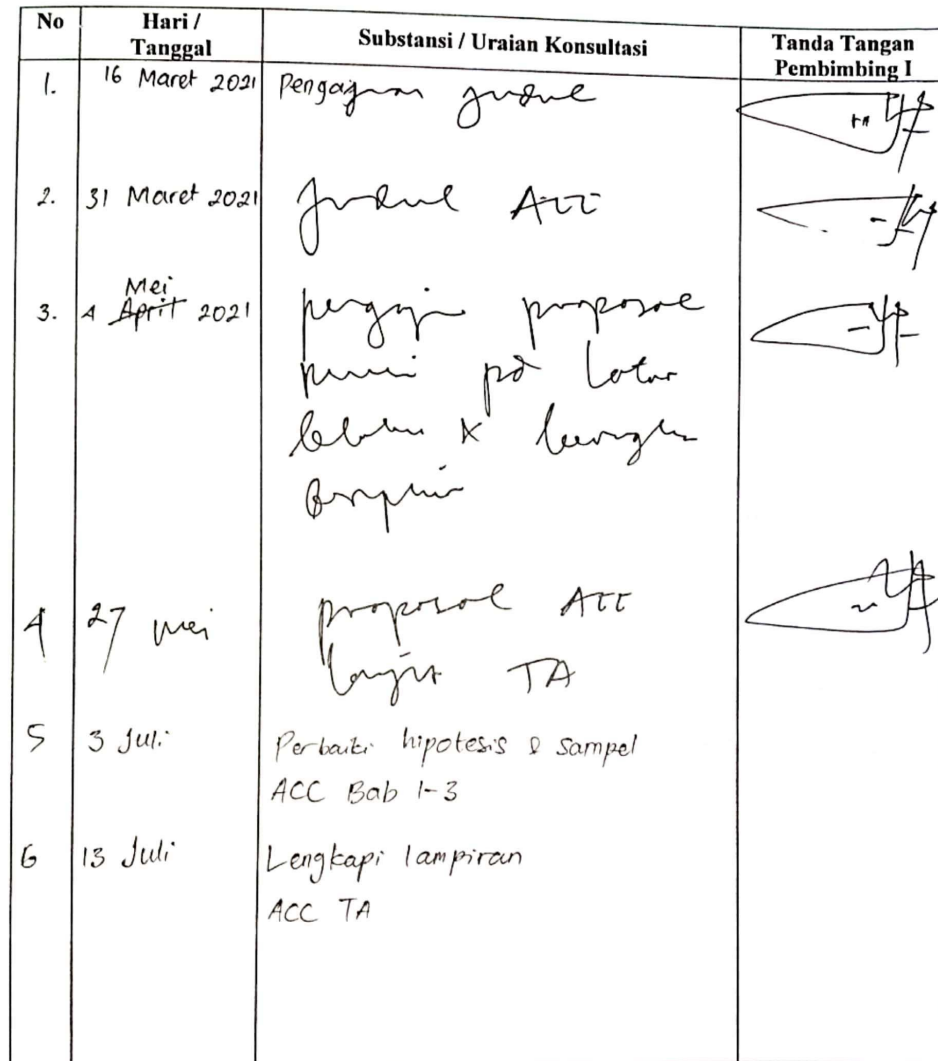 No Hari / Tanggal Substansi / Uraian Konsultasi Tanda Tangan Pembimbing I
1. 16 Maret 2021 Pengajuan judul
2. 31 Maret 2021 Judul ACC
3. 4 April Mei 2021 proposal
pd latar
4 27 mei proposal ACC
lanjut TA
5 3 Juli Perbaiki hipotesis & sampel
ACC Bab 1-3
6 13 Juli Lengkapi lampiran
ACC TA